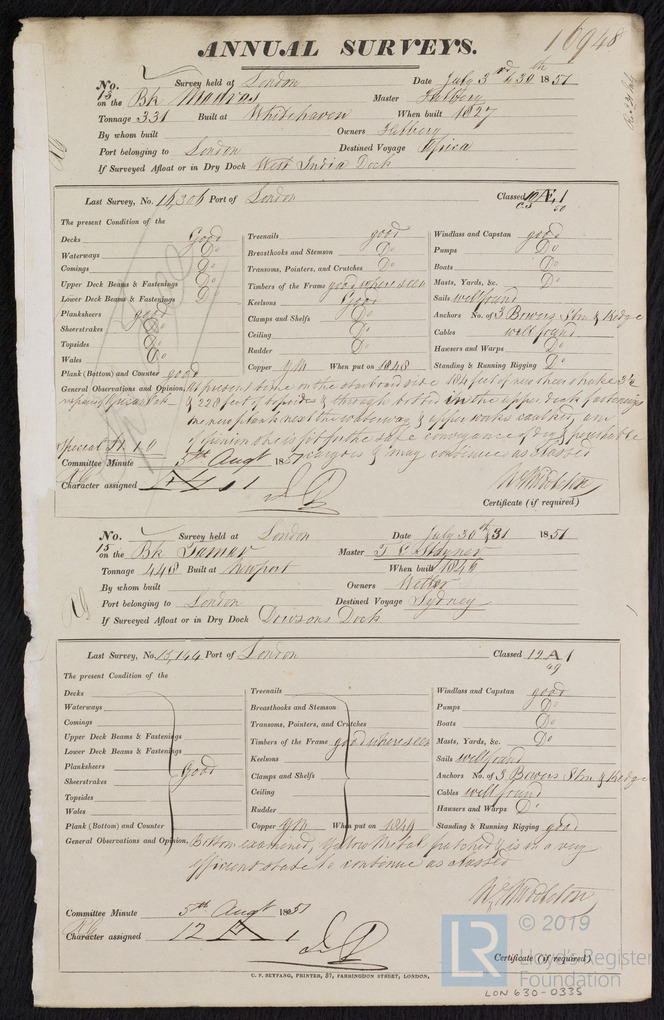 ANNUAL SURVEYS.
16948
No. Survey held at London Date July 3rd & 30th 1851
15
on the Bk Madras Master
Tonnage 331 Built at Whitehaven When built 1827
By whom built Owners
Port belonging to London Destined Voyage Africa
If Surveyed Afloat or in Dry Dock West India Dock
Last Survey, No. 16,306 Port of London Classed Æ 1
50
The present Condition of the
Decks Good
Waterways Do
Comings Do
Upper Deck Beams & Fastenings Do
Lower Deck Beams & Fastenings Do
Planksheers good
Sheerstrakes Do
Topsides Do
Wales Do
Plank (Bottom) and Counter good
Treenails good
Breasthooks and Stemson Do
Transoms, Pointers, and Crutches Do
Timbers of the Frame good where seen
Keelsons Good
Clamps and Shelfs Do
Ceiling Do
Rudder Do
Copper YM When put on 1848
Windlass and Capstan good
Pumps Do
Boats Do
Masts, Yards, &c. Do
Sails well found
Anchors No. of 3 Bowers Stm & Kedge
Cables well found
Hawsers and Warps Do
Standing & Running Rigging Do
General Observations and Opinion, At present done on the starboard side 184 feet of new sheerstrake
& 228 feet of topsides & through bolted in the upper deck fastenings
one new plank next the waterway & upper works caulked, am
of opinion she is fit for the safe conveyance of dry & perishable
cargoes & may continue as classed
Special £1 1 0
Committee Minute 5th Augt 1851
Character assigned Æ 1
Certificate (if required)
No. Survey held at London Date July 30th & 31 1851
15
on the Bk Tamar Master
Tonnage 448 Built at Newport When built 1846
By whom built Owners
Port belonging to London Destined Voyage Sydney
If Surveyed Afloat or in Dry Dock Dowsons Dock
Last Survey, No. 15,144 Port of London Classed 12 A 1
49
The present Condition of the
Decks
Waterways
Comings
Upper Deck Beams & Fastenings
Lower Deck Beams & Fastenings
Planksheers Good
Sheerstrakes
Topsides
Wales
Plank (Bottom) and Counter
Treenails
Breasthooks and Stemson
Transoms, Pointers, and Crutches
Timbers of the Frame good where seen
Keelsons
Clamps and Shelfs
Ceiling
Rudder
Copper YM When put on 1849
Windlass and Capstan good
Pumps Do
Boats Do
Masts, Yards, &c. Do
Sails well found
Anchors No. of 3 Bowers Stm & Kedge
Cables well found
Hawsers and Warps Do
Standing & Running Rigging good
General Observations and Opinion, Bottom examined, Yellow Metal patched & is in a very
efficient state to continue as classed
Committee Minute 5th Augt 1851
Character assigned 12 A 1
Certificate (if required)
C. F. SEYFANG, PRINTER, 57, FARRINGDON STREET, LONDON,
LR
© 2019
Lloyd's Register
Foundation
LON 630-0335